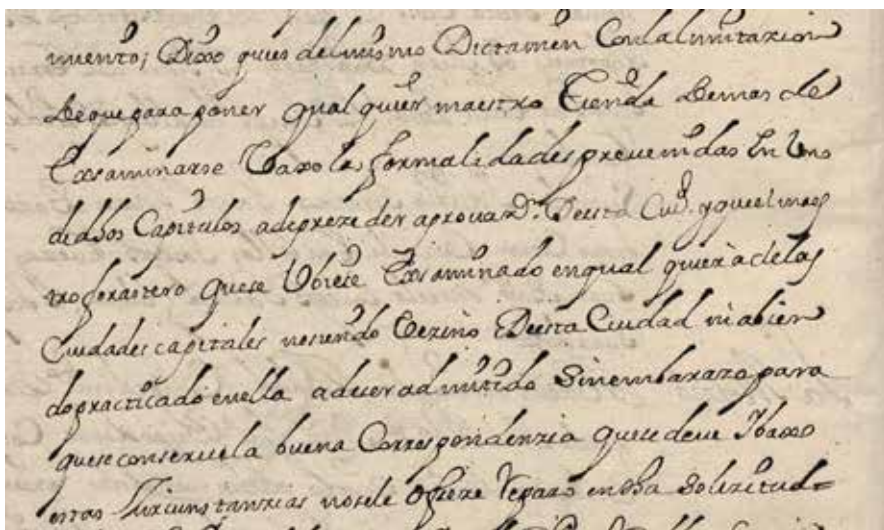 miento; Dixo que es del mismo Dictamen Con la limitazion
de que para poner qual quier maestro tienda demas de
Exsaminarse vaxo las formalidades prevenidas en Uno
de dhos Capitulos a de prezeder aprovaón. Desta Ciud. y que el maes
tro forastero que se Ubiese Exsaminado en qual quiera de las
Ciudades capitales no siendo Vezino Desta Ciudad ni abien
do practicado en ella a de ser admitido Sin embarazo para
que se conserve la buena Correspondenzia que se deve Y baxo
estas Zircunstanzias no se le ofreze reparo en dha Solizitud=